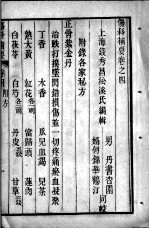 傷科補要卷之四
上海錢秀昌松溪氏編輯
男 丹書杏園 同校
婿何錦華鶴汀
附錄各家秘方
止骨紫金丹
治跌打撲墜閃錯損傷並一切疼痛瘀血凝聚
丁香 木香 瓜兒血竭 兒茶
熟大黃 紅花各一兩 當歸頭 蓮肉
白茯苓 白芍各二兩 丹皮五錢 甘草三錢